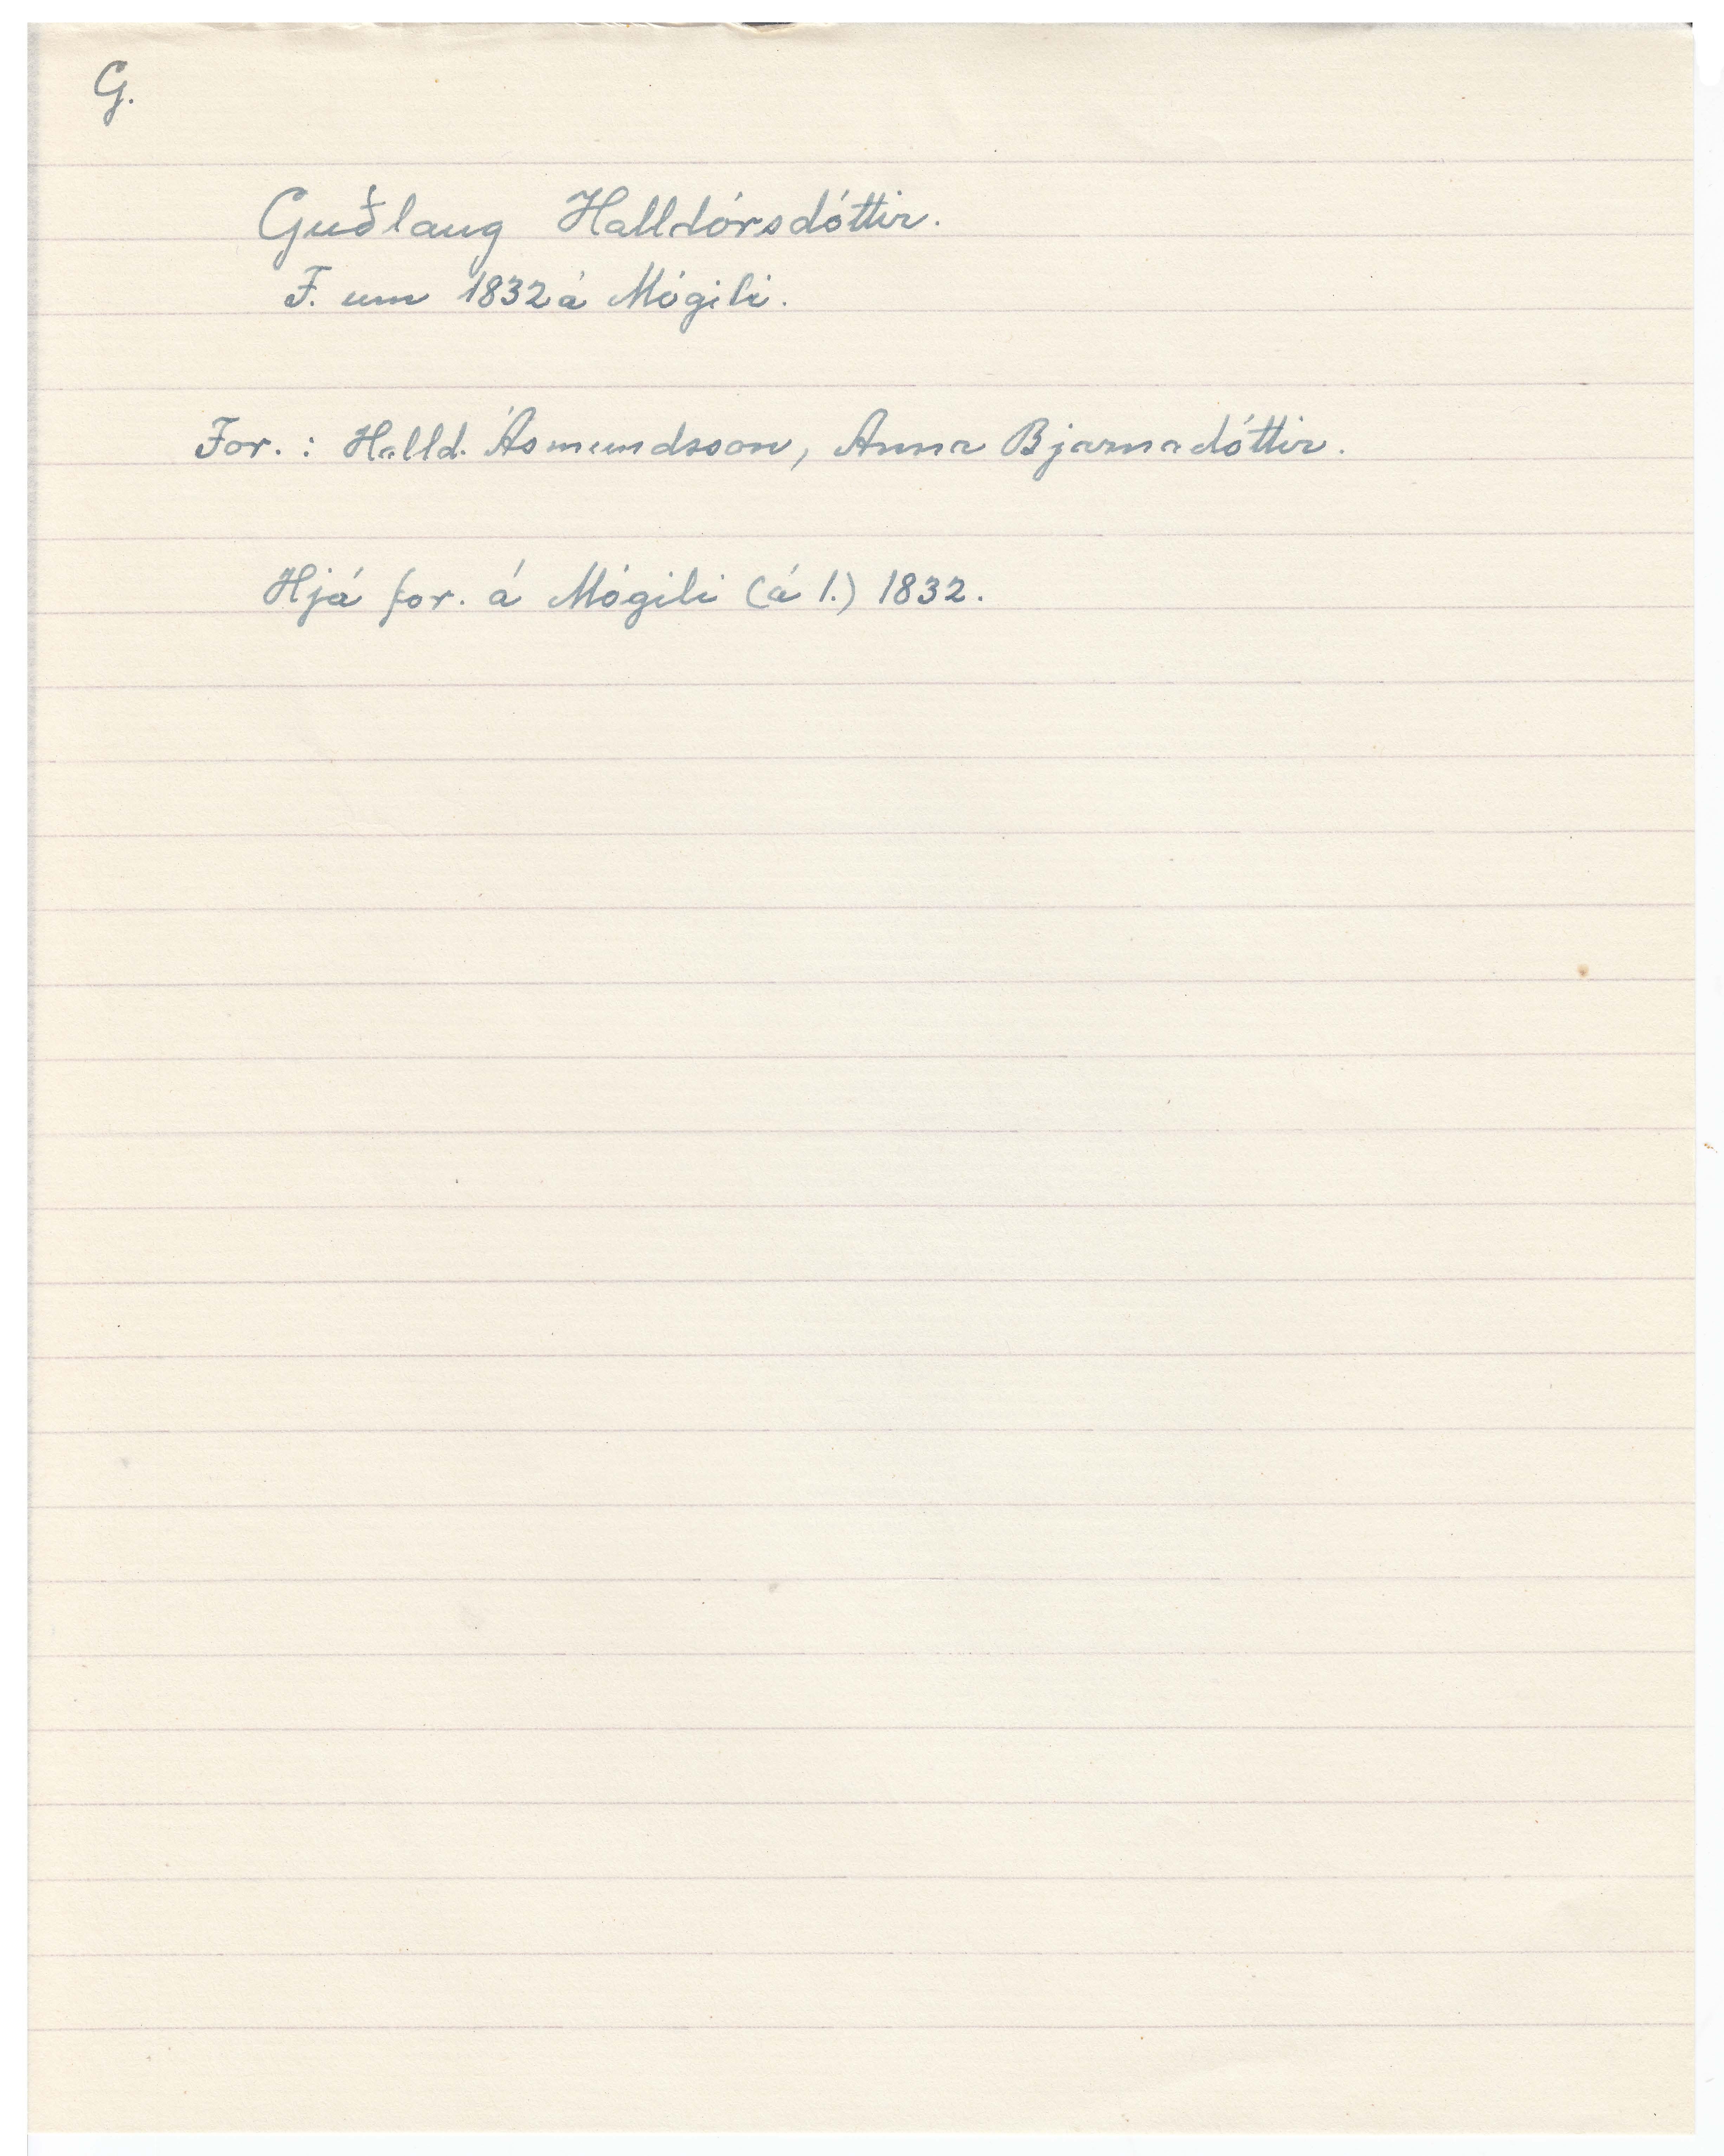 G.
Guðlaug Halldórsdóttir.
F. um 1832 á Mógili.
For.: Halld. Ásmundsson, Anna Bjarnadóttir.
Hjá for. á Mógili (á 1.) 1832.